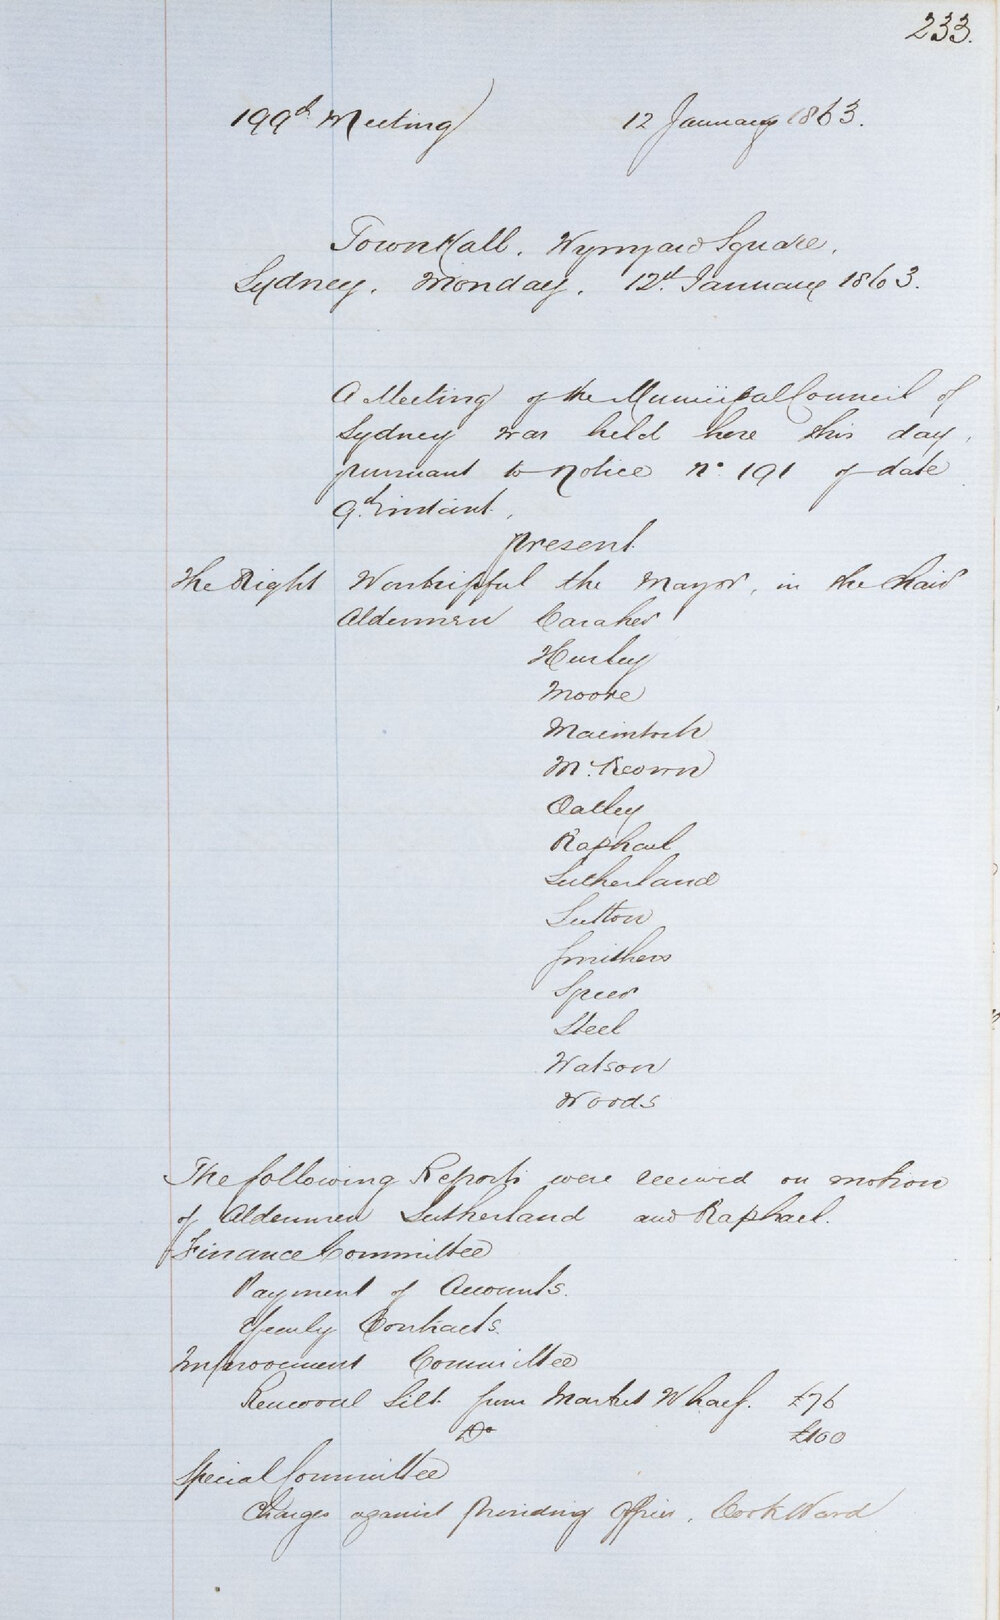 233.
199th Meeting) 12 January 1863.
Town Hall, Wynyard Square,
Sydney, Monday, 12th January 1863.
A Meeting of the Municipal Council of
Sydney was held here this day,
pursuant to notice no. 191 of date
9th instant,
present
The Right Worshipful the Mayor, in the Chair
Aldermen Caraher
Hurley
Moore
Macintosh
Mc.Keown
Oatley
Raphael
Sutherland
Sutton
Smithers
Speer
Steel
Watson
Woods
The following Reports were received on motion
of Aldermen Sutherland and Raphael.
Finance Committee
Payment of Accounts.
Yearly Contracts.
Improvement Committee
Removal Silt from Market Wharf. £76
Do £100
Special Committee
Charges against Presiding Officer, Cook Ward